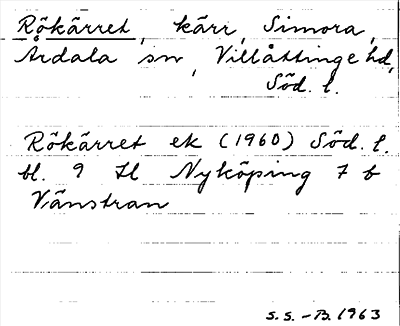 Rökärret, kärr, Simora,
Årdala sn, Villåttinge hd,
Söd. l.
Rökärret ek (1960) Söd. l.
bl. 9 H Nyköping 7 b
Vänstran
S.S. - B. 1963